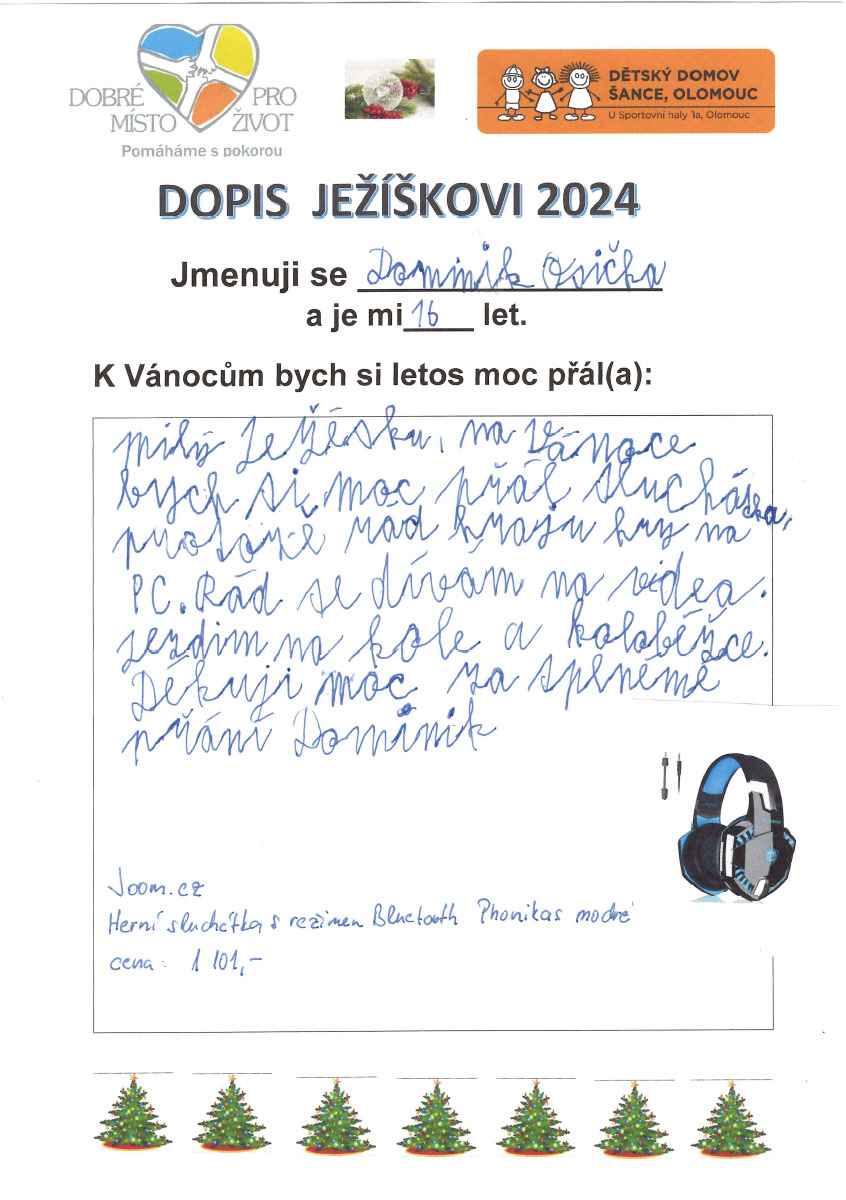 DOBRÉ PRO
MÍSTO ŽIVOT
Pomáháme s pokorou
DĚTSKÝ DOMOV
ŠANCE, OLOMOUC
U Sportovní haly 1a, Olomouc
DOPIS JEŽÍŠKOVI 2024
Jmenuji se Dominik Osička
a je mi 16 let.
K Vánocům bych si letos moc přál(a):
milý Ježésku, na
Vánoce
bych si moc přál sluchátka,
protože rád hraju hry na
PC. Rád se dívám na videa.
jezdim na kole a koloběžce.
Děkuji moc za splnémé
přání Dominik
Joom.cz
Herní sluchátka s režimen Bluetooth Phonikas modré
cena: 1 101,-